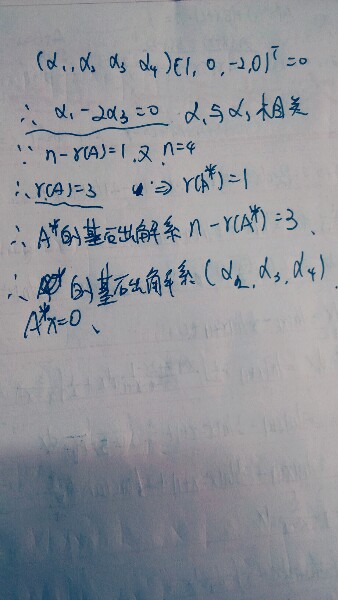 (α₁, α₂ α₃ α₄)(1, 0, -2, 0)ᵀ = 0
∴ α₁ - 2α₃ = 0 α₁与α₃相关
∵ n-r(A)=1, 又 n=4
∴ r(A)=3 ⇒ r(A*)=1
∴ A*的基础解系 n-r(A*)=3、
∴ 的基础解系 (α₂, α₃, α₄)
A*x=0、